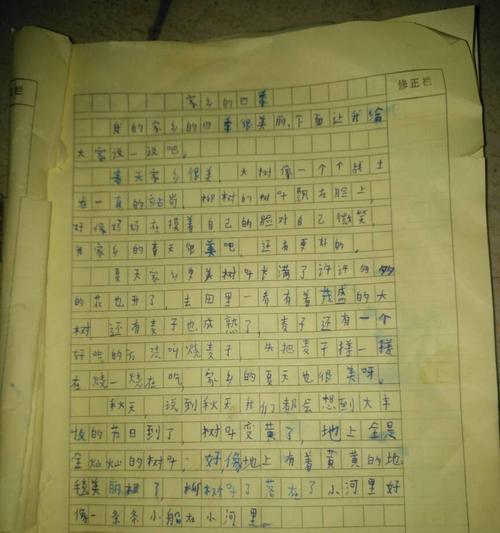 修正栏
家乡的四季
我的家乡的四季很美丽,下面让我给
大家说一说吧。
春天家乡很美,大树像一个个战士
在一直的站岗,柳树的树叶飘在脸上,
好像妈妈在摸着自己的脸对自己微笑。
我家乡的春天很美吧,还有更好的。
夏天家乡更美树叶长满了许许多多
的花也开了,去田里一看有着茂盛的大
树,还有麦子也成熟了,麦子还有一个
好吃的方法叫烧麦子,先把麦子
在烧一烧在吃,家乡的夏天也很美呀。
秋天,说到秋天我们都会想到大丰
收的节日到了,树叶变黄了,地上全是
金灿灿的树叶,好像地上有着黄黄的地
毯美丽极了,柳树叶了落在了小河里好
像一条条小船在小河里。